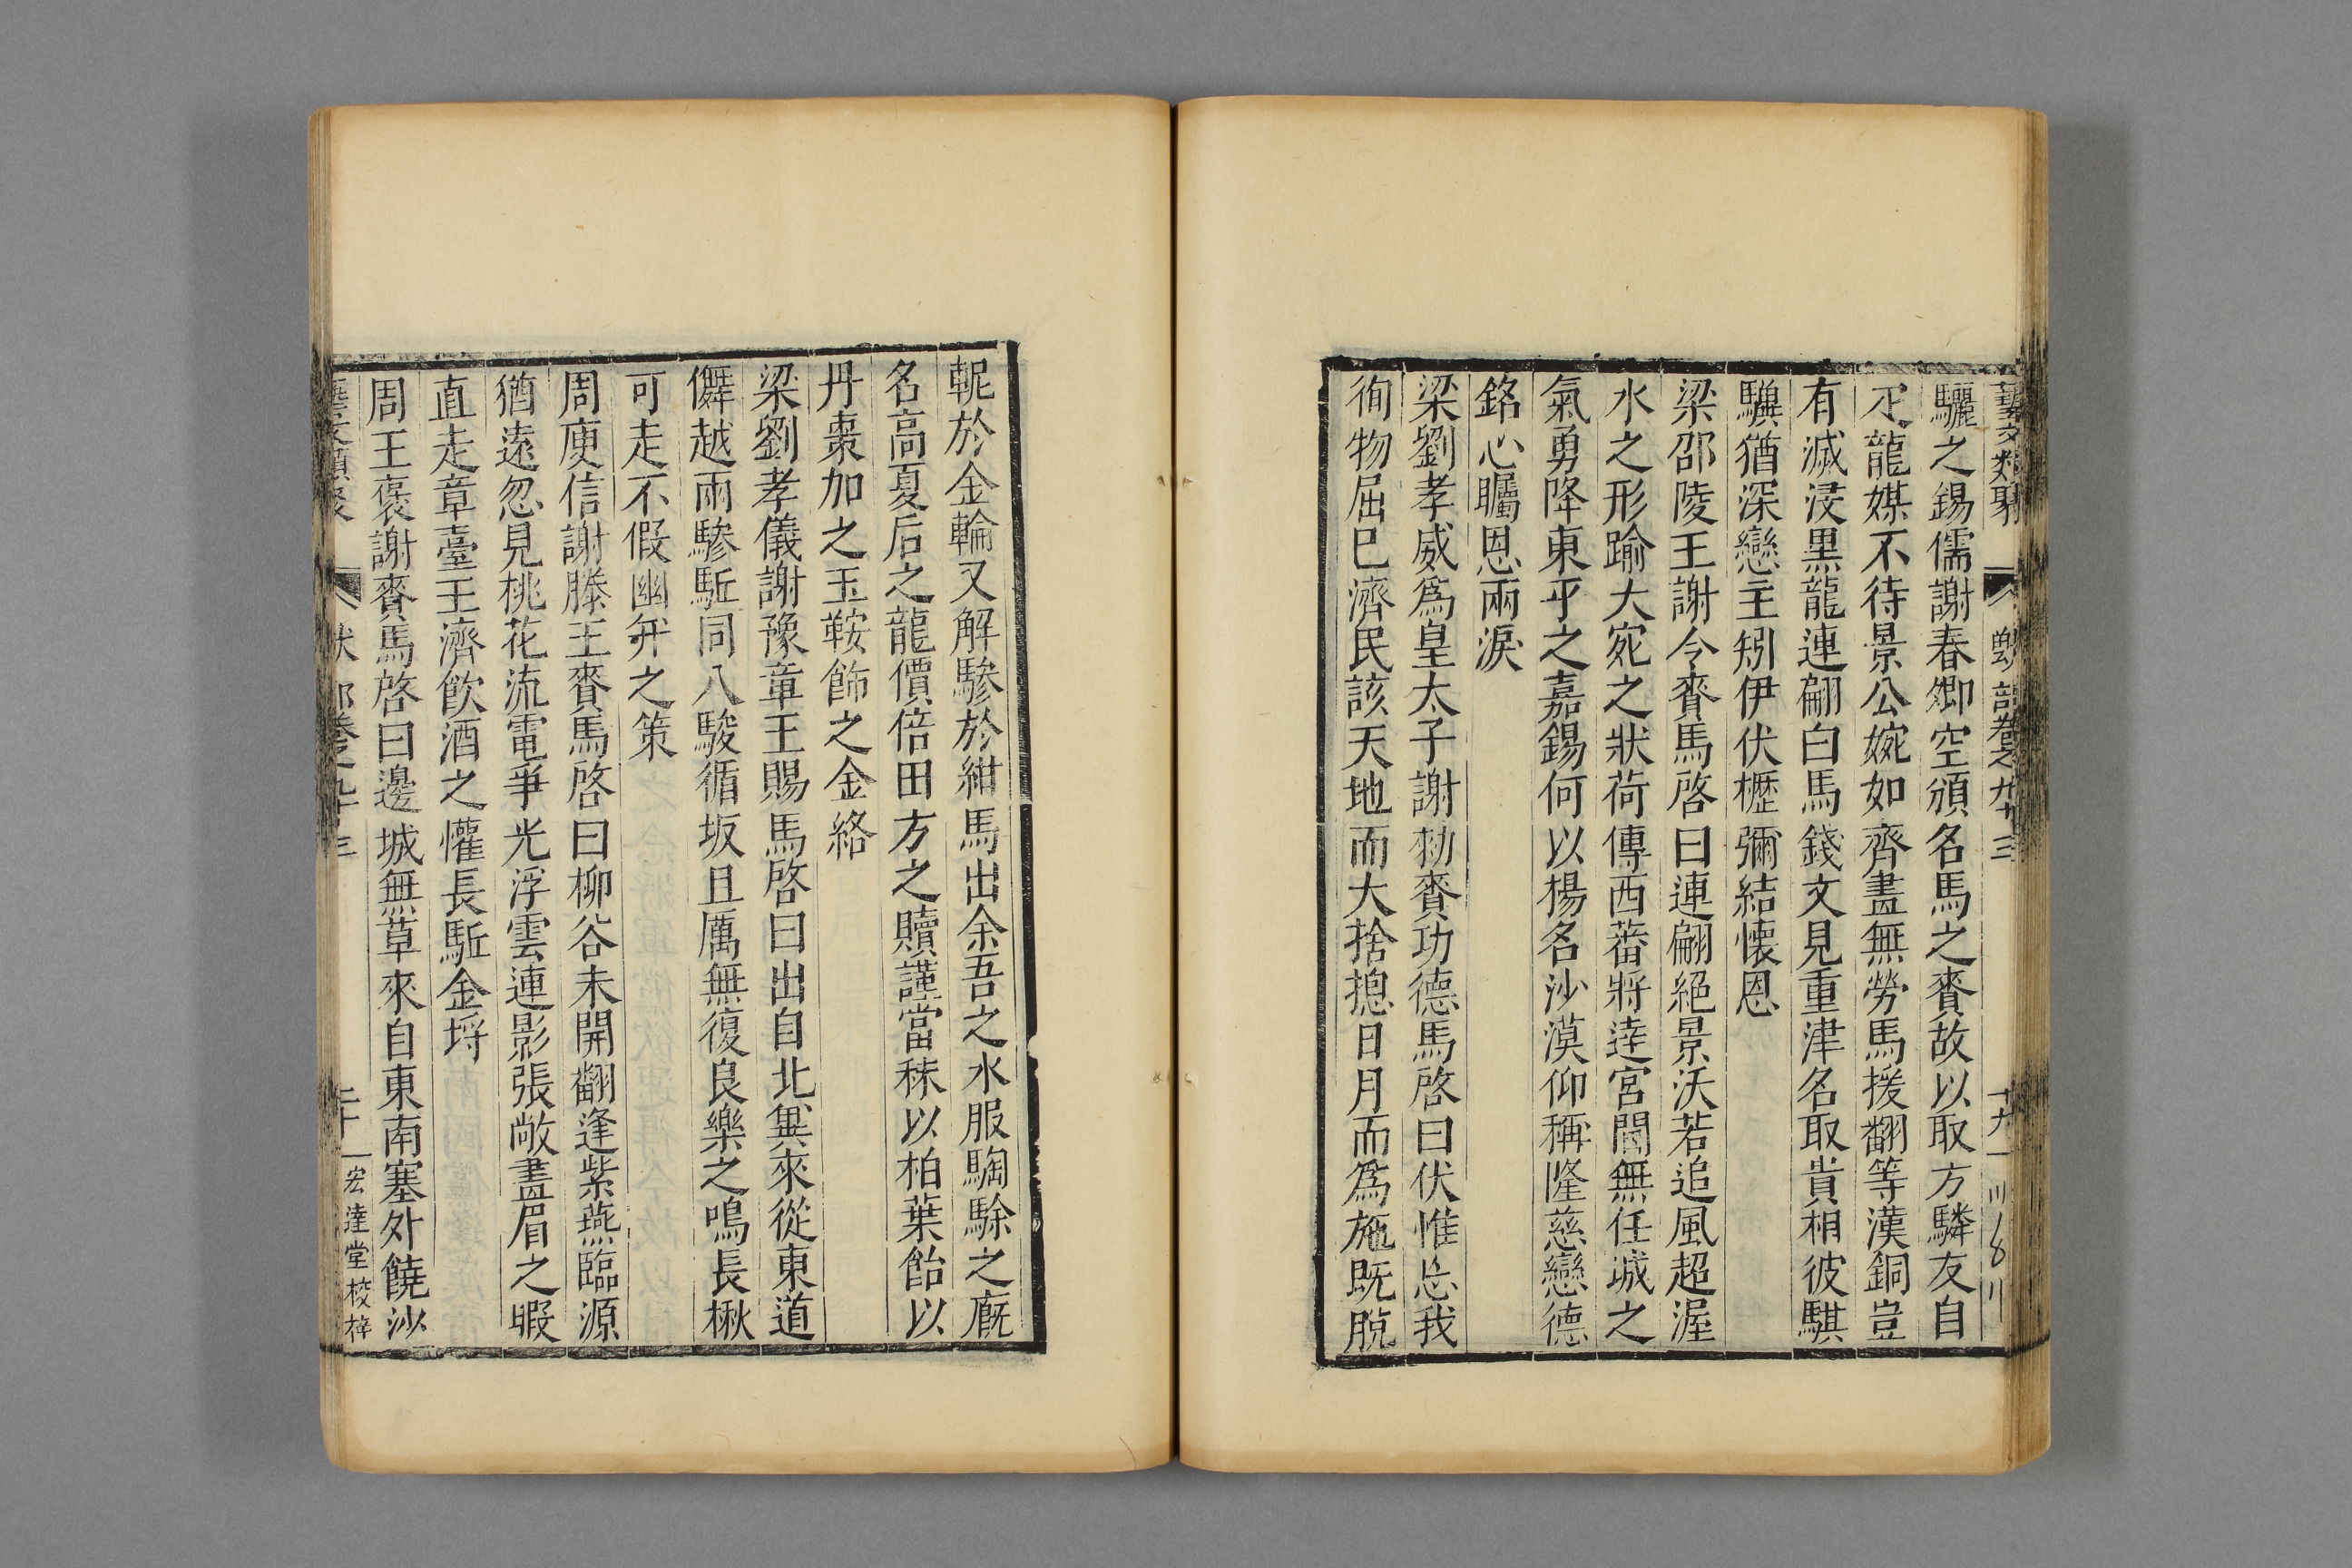 藝文類聚 獸部卷之九十三 十九
驪之錫儒謝春卿空頒名馬之賚故以取方驎友自
龍媒不待景公婉如齊畫無勞馬援翻等漢銅豈
有滅浸黒龍連翩白馬錢文見重津名取貴相彼騏
驥猶深戀主矧伊伏櫪彌結懷恩
梁邵陵王謝令賚馬啓曰連翩絕景沃若追風超渥
水之形踰大宛之狀荷傳西蕃將達宮闈無任城之
氣勇降東平之嘉錫何以楊名沙漠仰稱隆慈戀德
銘心矚恩兩淚
梁劉孝威爲皇太子謝勑賚功德馬啓曰伏惟忘我
徇物屈已濟民該天地而大捨揔日月而爲施既脫
軛於金輪又解驂於紺馬出余吾之水服騊駼之廐
名高夏后之龍價倍田方之贖謹當秣以柏葉飴以
丹棗加之玉鞍飾之金絡
梁劉孝儀謝豫章王賜馬啓曰出自北冀來從東道
儛越兩驂駈同八駿循坂且厲無復良樂之鳴長楸
可走不假幽并之策
周庾信謝滕王賚馬啓曰柳谷未開翻逢紫燕臨源
猶遠忽見桃花流電爭光浮雲連影張敞畫眉之暇
直走章臺王濟飲酒之懽長駈金埒
周王褒謝賚馬啓曰邊城無草來自東南塞外饒沙
藝文類聚 獸部卷之九十三 二十 宏達堂校梓